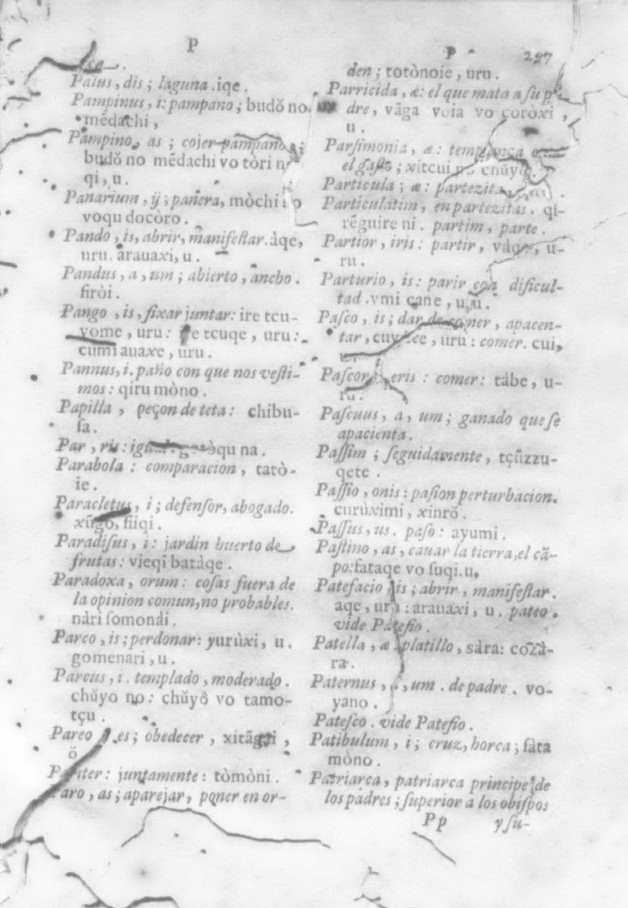 P
P 297
Palus, dis; laguna. iqe.
Pampinus, i: pampano; budŏ no
mēdachi,
Pampino, as; cojer pampanos;
budŏ no mēdachi vo tòri
qi, u.
Panarium, ij; panera, mòchi
voqu docòro.
Pando, is, abrir, manifestar. àqe,
uru. arauaxi, u.
Pandus, a, um; abierto, ancho.
firòi.
Pango, is, fixar juntar: ire tcu-
yome, uru: ire tcuqe, uru:
cumi auaxe, uru.
Pannus, i. paño con que nos vesti-
mos: qiru mòno.
Papilla, peçon de teta: chibu-
sa.
Par, ris: igual: gotòqu na.
Parabola: comparacion, tatò-
ie.
Paracletus, i; defensor, abogado.
xũgo, fiiqi.
Paradisus, i: jardin huerto de
frutas: vieqi batàqe.
Paradoxa, orum: cosas fuera de
la opinion comun, no probables.
nàri somonài.
Parco, is; perdonar: yurùxi, u.
gomenari, u.
Parcus, i. templado, moderado.
chŭyo no: chŭyŏ vo tamo-
tçu.
Pareo, es; obedecer,
ŏ
Pariter: juntamente: tòmòni.
Paro, as; aparejar, poner en or-
den; totònoie, uru.
Parricida, æ: el que mata a su p
dre, vāga voia vo coròxi,
u.
Parsimonia, æ: templança
el gasto; xitcui no chŭyŏ
Particula; æ: partezita
Particulàtim, en partezitas. qi-
rēguire ni. partim, parte.
Partior, iris: partir, vàqe, u-
ru.
Parturio, is: parir con dificul-
tad. vmi cane, uru.
Pasco, is; dar de comer, apacen-
tar, uru: comer. cui,
u.
Pascor, eris: comer: tàbe, u-
ru.
Pascuus, a, um; ganado que se
apacienta.
Passim; seguidamente, tçŭzzu-
qete.
Passio, onis: pasion perturbacion.
curùximi, xinrŏ.
Passus, us. paso: ayumi.
Pastino, as, cavar la tierra, el cā-
po: fataqe vo suqi. u,
Patefacio is; abrir, manifestar.
aqe, uru: arauàxi, u. pateo.
vide Patefio.
Patella, æ. platillo, sàra: cozà-
ra.
Paternus, a, um. de padre. vo-
yano.
Patesco. vide Patefio.
Patibulum, i; cruz, horca; fata
mòno.
Patriarca, patriarca principe de
los padres; superior a los obispos
Pp y su-